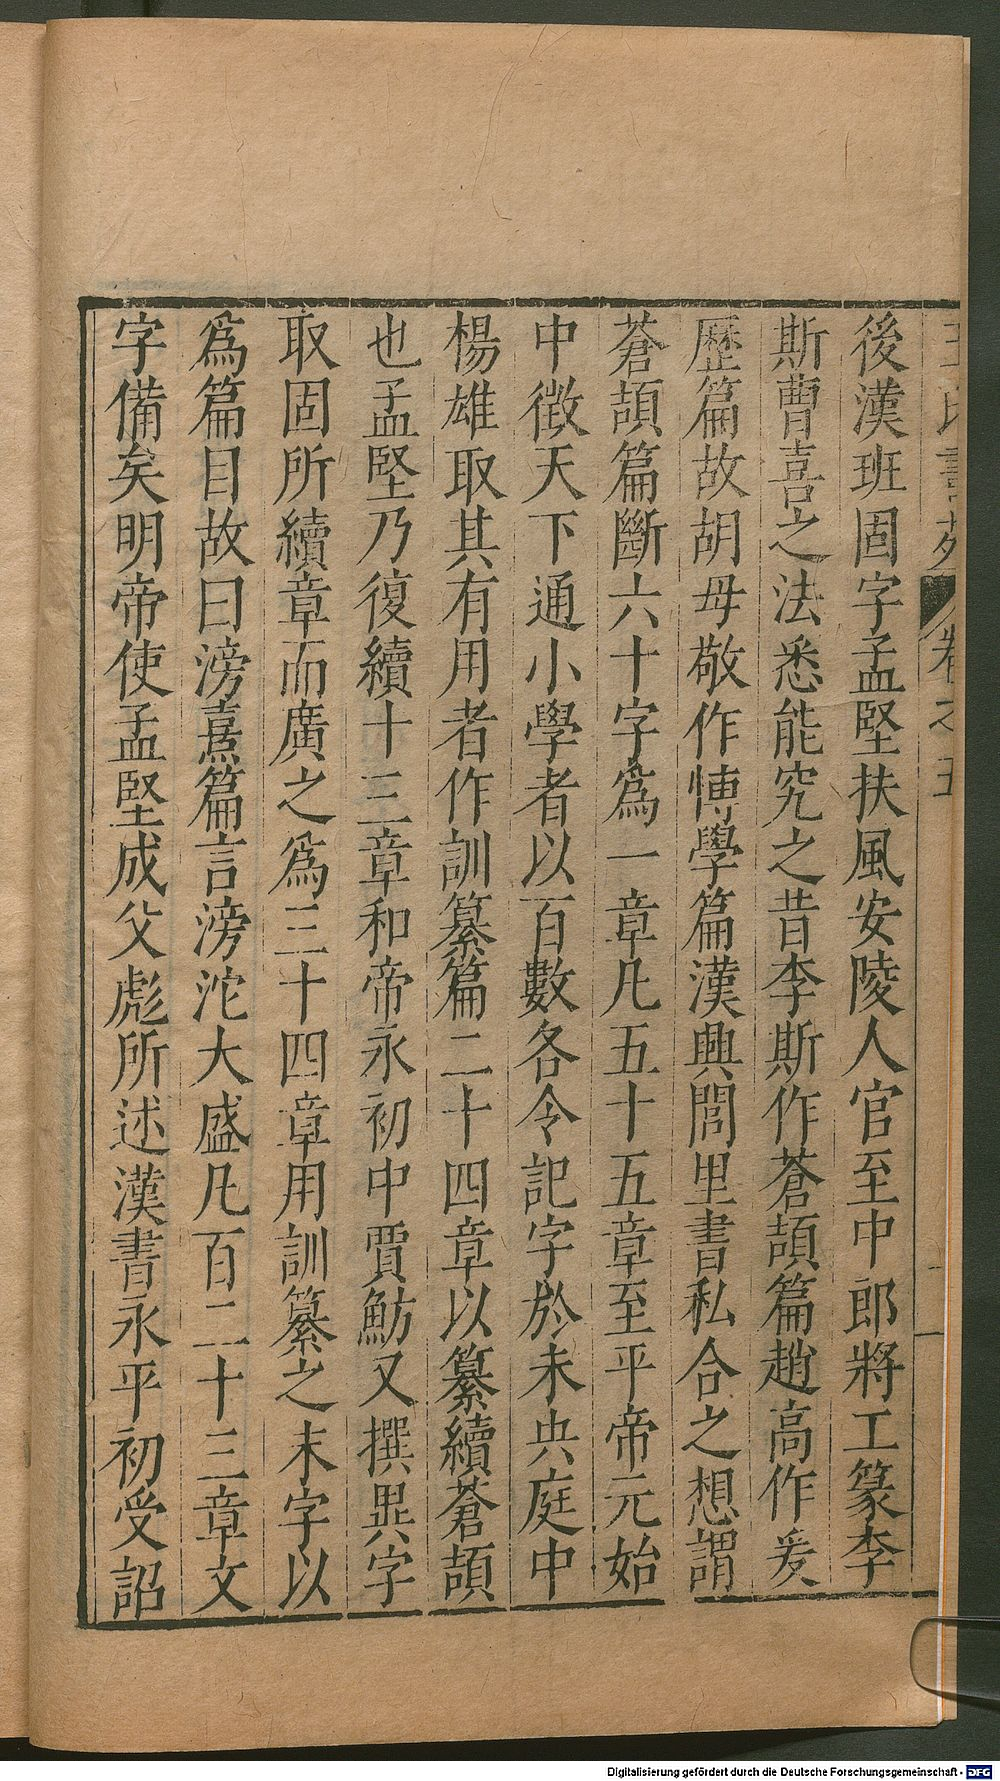 王氏書苑 卷之五
後漢班固字孟堅扶風安陵人官至中郎將工篆李
斯曹喜之法悉能究之昔李斯作蒼頡篇趙高作爰
歷篇故胡毋敬作愽學篇漢興閭里書私合之想謂
蒼頡篇斷六十字爲一章凡五十五章至平帝元始
中徴天下通小學者以百數各令記字於未央庭中
楊雄取其有用者作訓纂篇二十四章以纂續蒼頡
也孟堅乃復續十三章和帝永初中賈魴又撰異字
取固所續章而廣之爲三十四章用訓纂之末字以
爲篇目故曰滂熹篇言滂沱大盛凡百二十三章文
字備矣明帝使孟堅成父彪所述漢書永平初受詔
Digitalisierung gefördert durch die Deutsche Forschungsgemeinschaft - DFG